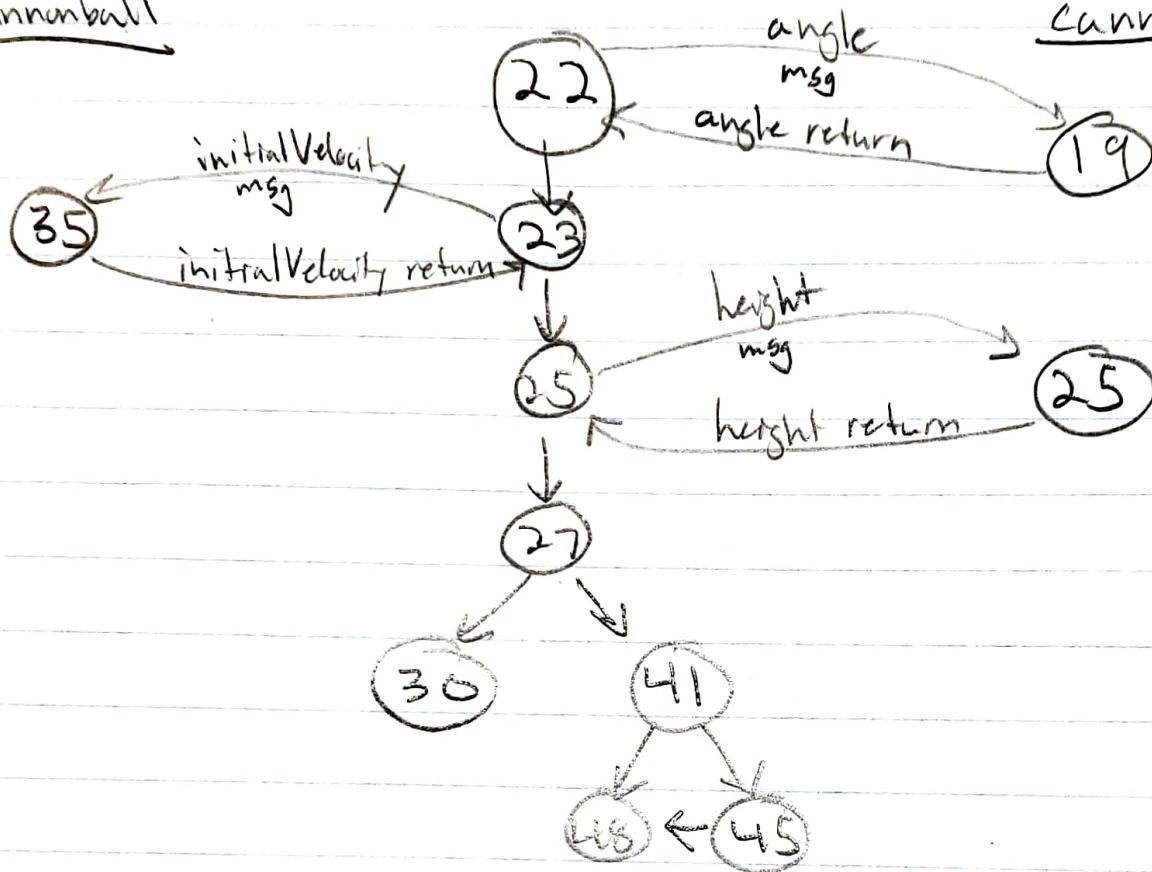 nnonball
Cann
angle
msg
22
angle return
19
initialVelocity
msg
35
23
initialVelocity return
height
msg
25
25
height return
27
30
41
48
45